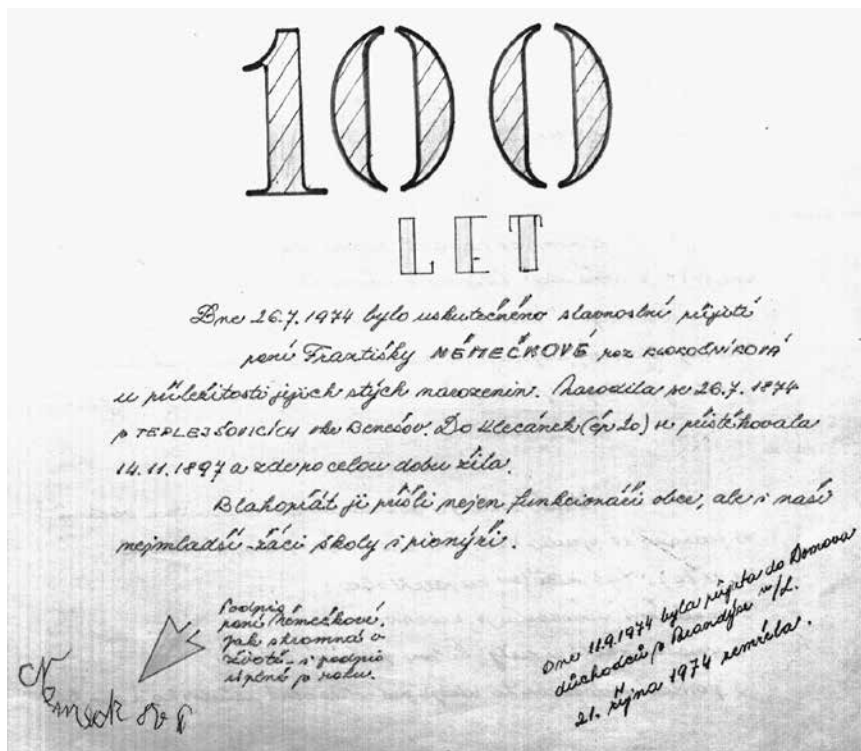 100
LET
Dne 26.7.1974 bylo uskutečněno slavnostní přijetí
paní Františky NĚMEČKOVÉ roz KLOKOČNÍKOVÁ
u příležitosti jejich stých narozenin. Narodila se 26.7.1874
v TEPLEJŠOVICÍCH okr Benešov. Do Klecánek (čp 20) se přistěhovala
14.11.1897 a zde po celou dobu žila.
Blahopřát jí přišli nejen funkcionáři obce, ale i naši
nejmladší - žáci školy i pionýři.
Podpis
paní Němečkové.
Jak skromná v
životě - i podpis
úplně v rohu.
Dne 11.9.1974 byla přijata do Domova
důchodců v Brandýse n/L.
21. října 1974 zemřela.